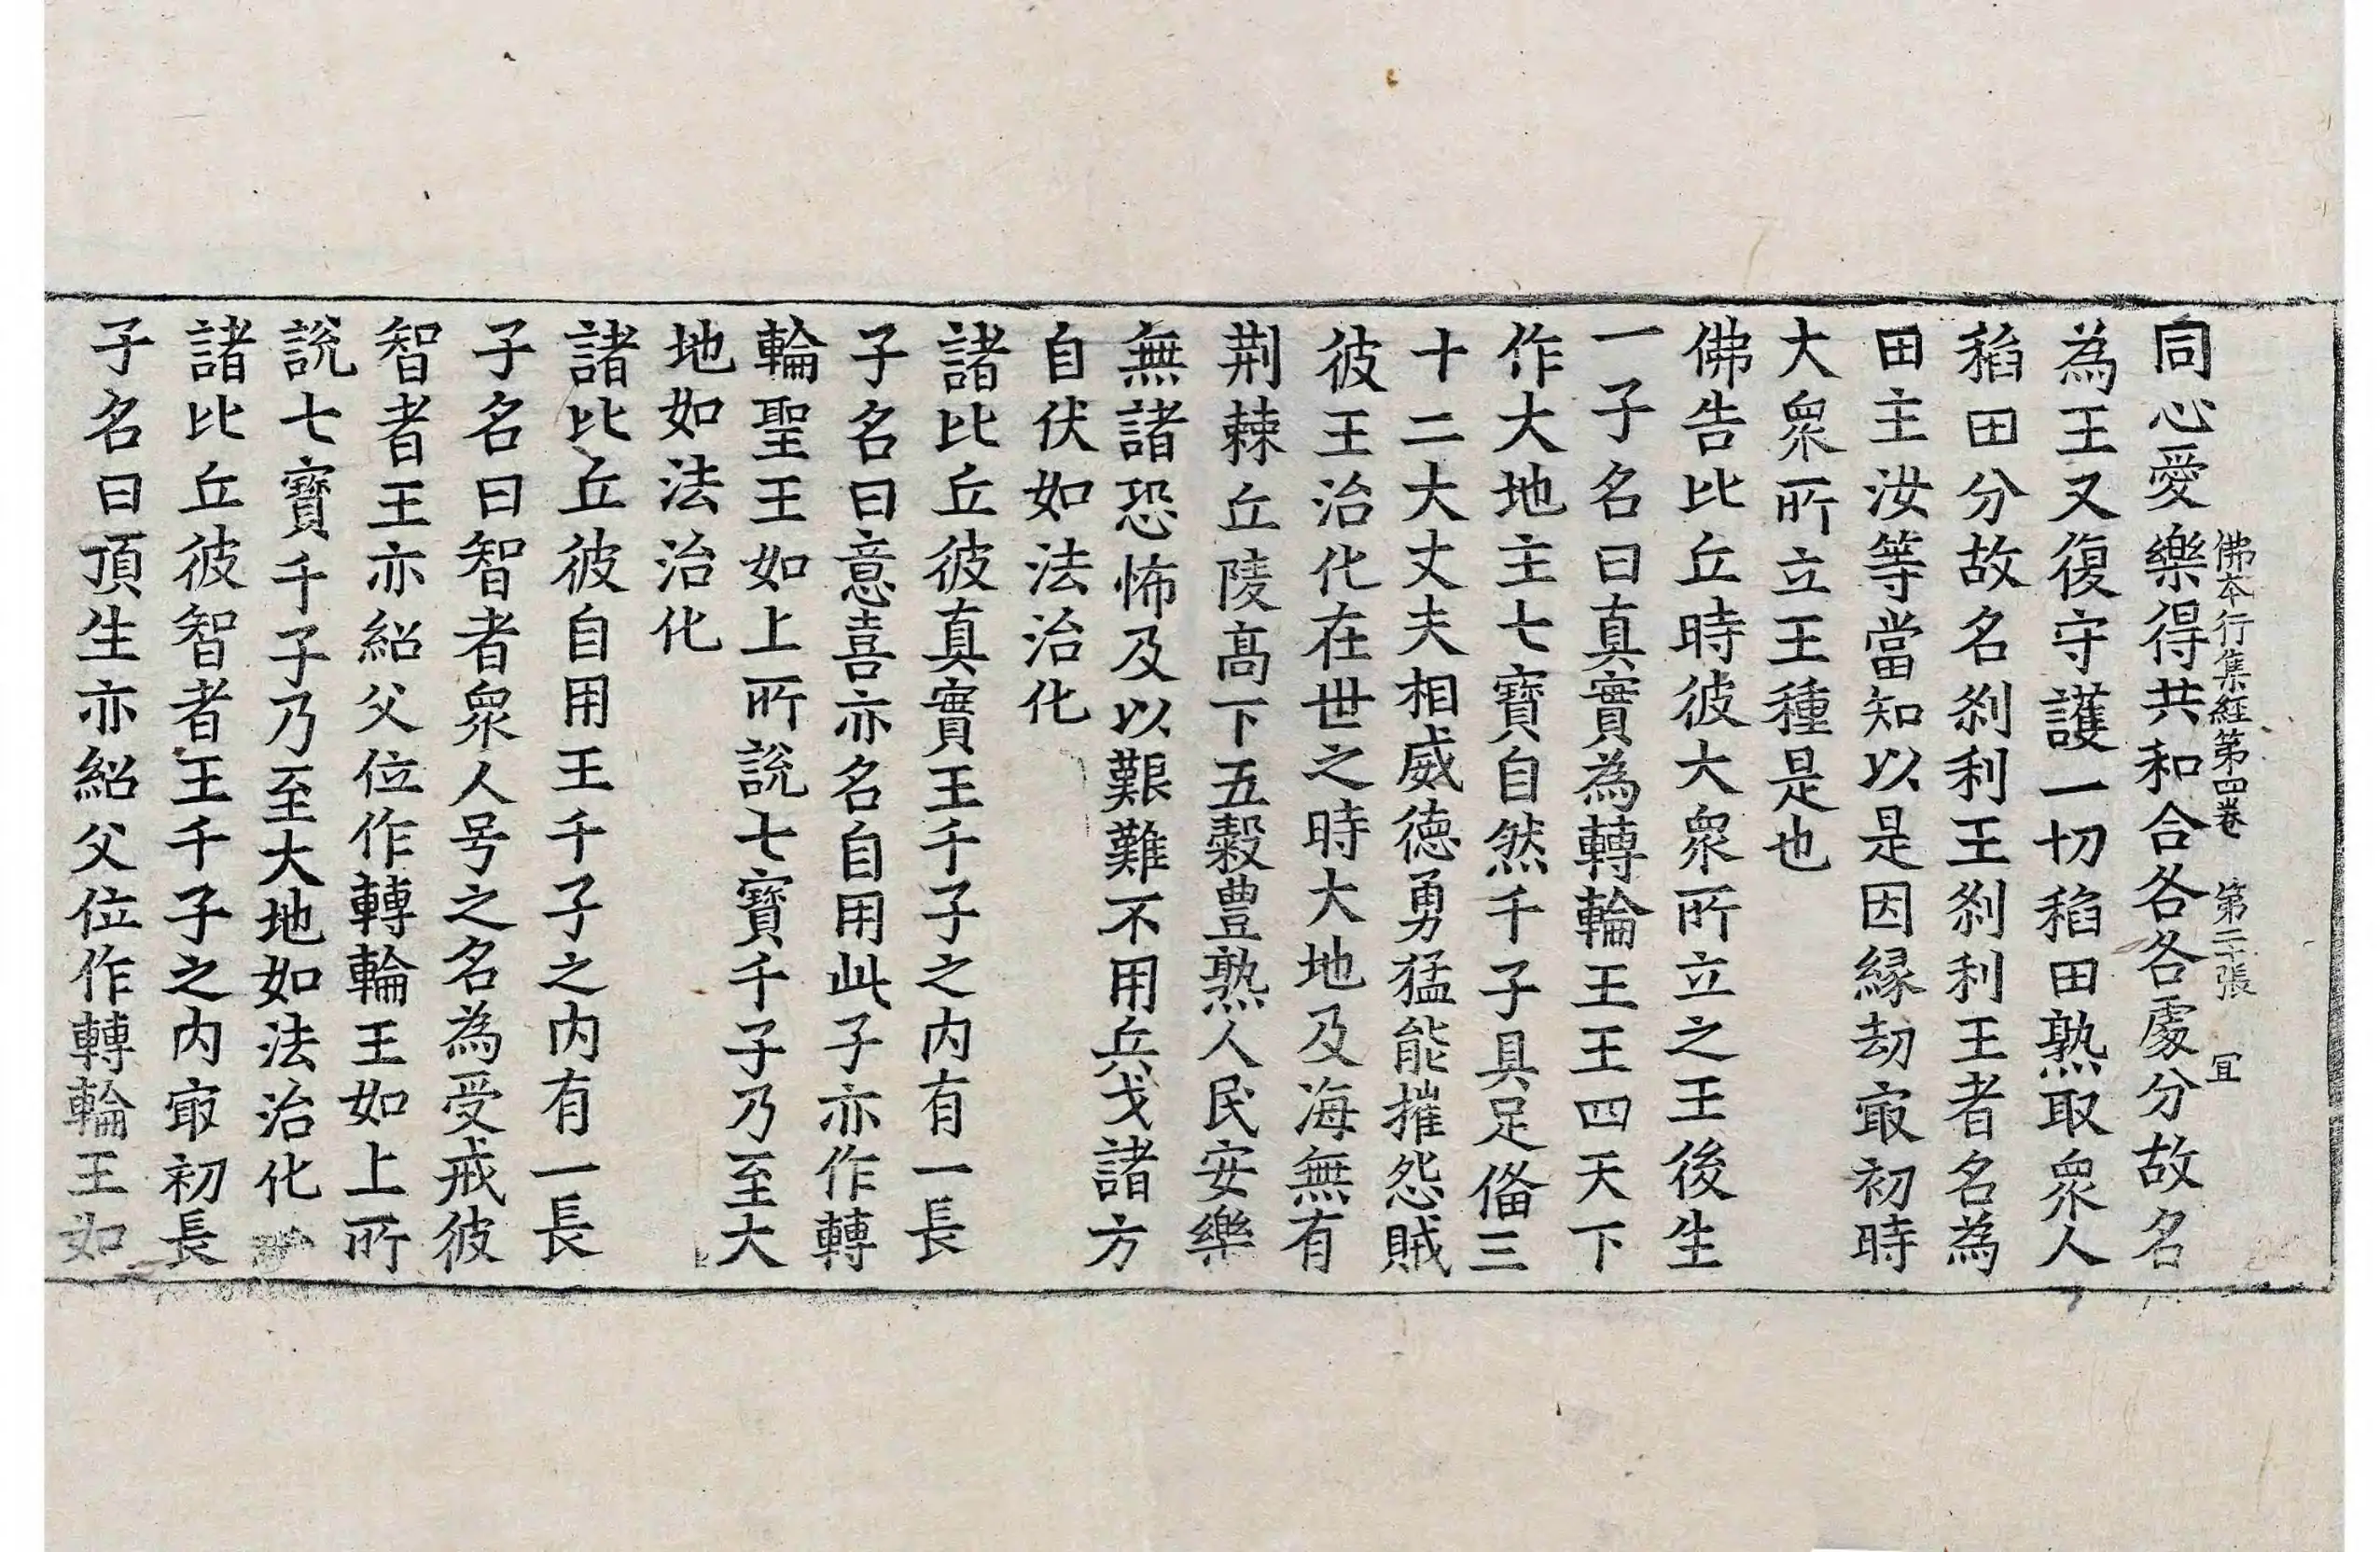 佛本行集経第四卷　第二張　冝
同心愛樂得共和合各各處分故名
為王又復守護一切稻田熟取衆人
稻田分故名刹利王刹利王者名為
田主汝等當知以是因緣劫㝡初時
大衆所立王種是也
佛告比丘時彼大衆所立之王後生
一子名曰真實為轉輪王王四天下
作大地主七寶自然千子具足俻三
十二大丈夫相威德勇猛能摧怨賊
彼王治化在世之時大地及海無有
荆棘丘陵髙下五穀豊熟人民安樂
無諸恐怖及以艱難不用兵戈諸方
自伏如法治化
諸比丘彼真實王千子之内有一長
子名曰意喜亦名自用此子亦作轉
輪聖王如上所說七寶千子乃至大
地如法治化
諸比丘彼自用王千子之内有一長
子名曰智者衆人号之名為受戒彼
智者王亦紹父位作轉輪王如上所
說七寶千子乃至大地如法治化
諸比丘彼智者王千子之内㝡初長
子名曰頂生亦紹父位作轉輪王如